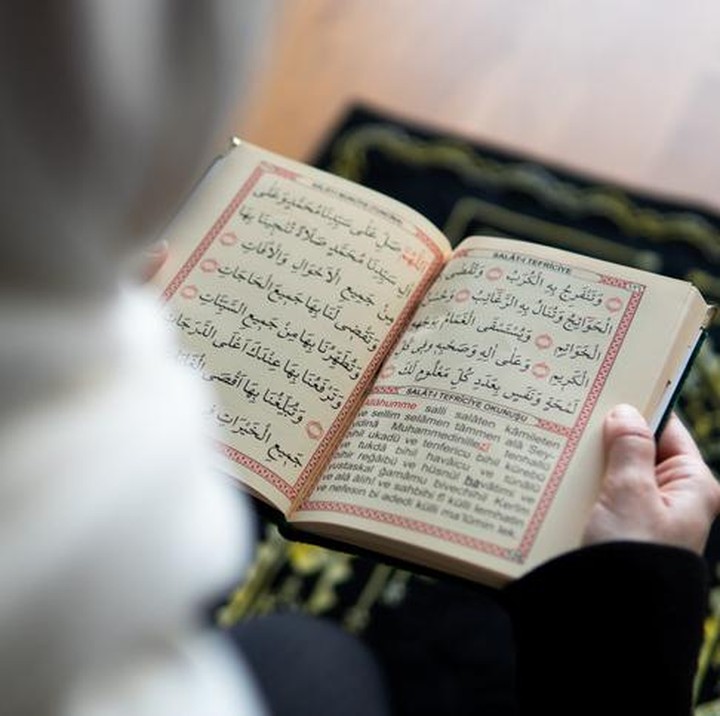 SALÂT-I TEFRİCİYE
وَتَنْفَرِجُ بِهِ الْكُرَبُ وَتُقْضٰى
الْحَوَائِجُ وَتُنَالُ بِهِ الرَّغَائِبُ وَحُسْنُ
الْخَوَاتِمِ وَيُسْتَسْقَى الْغَمَامُ بِوَجْهِهِ
الْكَرِيمِ وَعَلٰى اٰلِهِ وَصَحْبِهِ فِى كُلِّ
لَمْحَةٍ وَنَفَسٍ بِعَدَدِ كُلِّ مَعْلُومٍ لَكَ
SALÂT-I TEFRİCİYE OKUNUŞU
salli salâten kâmileten
ve sellim selâmen tâmmen alâ Sey-
Muhammedinillezî tenhallu
bihil ukadü ve tenfericu bihil kürebü
ve tukdâ bihil havâicu ve tünâlü
bihir reğâibü ve hüsnül havâtimi ve
yustaskal ğamâmu bivechihil Kerîm
ve alâ âlihî ve sahbihî fî külli lemhatin
ve nefesin bi adedi külli ma'lûmin lek.
صَلِّ عَلٰى سَيِّدِنَا مُحَمَّدٍ وَعَلٰى
اٰلِ سَيِّدِنَا مُحَمَّدٍ صَلَاةً تُنْجِينَا بِهَا
مِنْ جَمِيعِ الْاَحْوَالِ وَالْاٰفَاتِ
وَتَقْضِى لَنَا بِهَا جَمِيعَ الْحَاجَاتِ
وَتُطَهِّرُنَا بِهَا مِنْ جَمِيعِ السَّيِّئَاتِ
وَتَرْفَعُنَا بِهَا عِنْدَكَ اَعْلَى الدَّرَجَاتِ
وَتُبَلِّغُنَا بِهَا اَقْصَى
جَمِيعِ الْخَيْرَاتِ